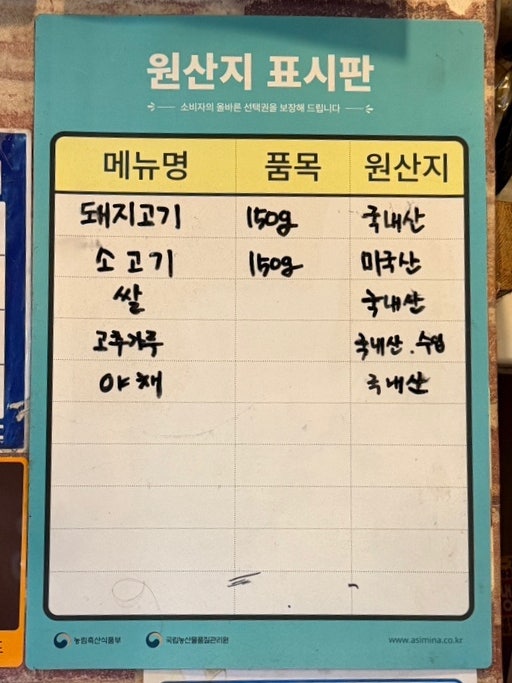 원산지 표시판
소비자의 올바른 선택권을 보장해 드립니다
메뉴명 품목 원산지
돼지고기 150g 국내산
소고기 150g 미국산
쌀 국내산
고추가루 국내산. 수입
야채 국내산
농림축산식품부 국립농산물품질관리원 www.asimina.co.kr